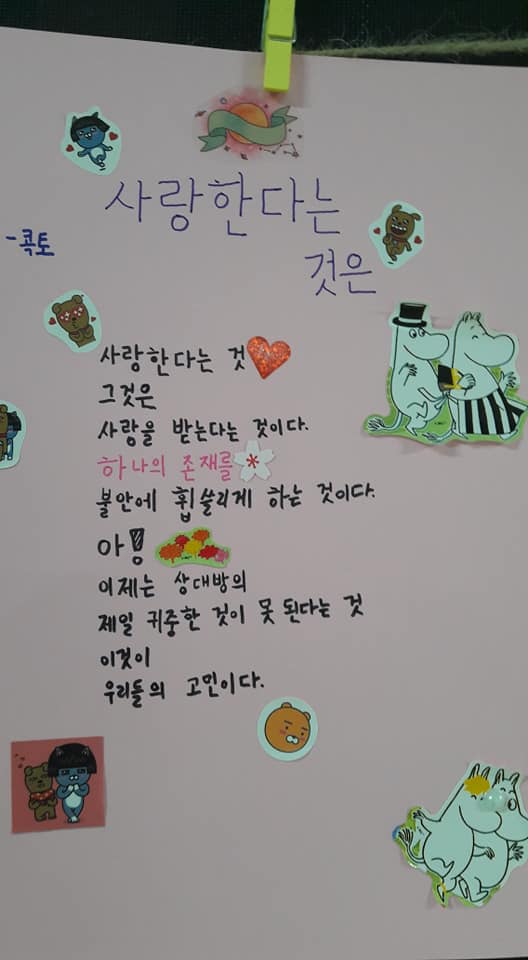 사랑한다는
것은
-콕토
사랑한다는 것
그것은
사랑을 받는다는 것이다.
하나의 존재를
불안에 휩쓸리게 하는 것이다.
아!
이제는 상대방의
제일 귀중한 것이 못 된다는 것
이것이
우리들의 고민이다.